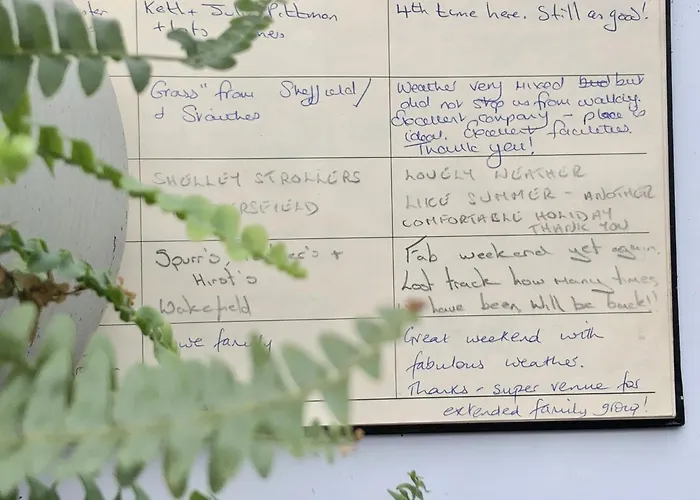 Kett + Pittman
4th time here. Still as good!
Grass" from Sheffield/
Weather very mixed but
did not stop us from walking.
Excellent company - place is
ideal. Excellent facilities.
Thank you!
SHELLEY STROLLERS
LOVELY WEATHER
LIKE SUMMER - ANOTHER
COMFORTABLE HOLIDAY
THANK YOU
Spurr's,
Hirst's
Wakefield
Fab weekend yet again.
Lost track how many times
have been. Will be back!!
family
Great weekend with
fabulous weather.
Thanks - super venue for
extended family group!